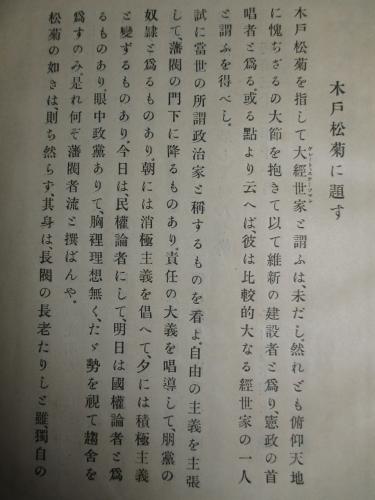 木戸松菊に題す
木戸松菊を指して大經世家と謂ふは、未だし。然れども俯仰天地
グレートステーツマン
に愧ぢざるの大節を抱きて以て維新の建設者と爲り、憲政の首
唱者と爲る。或る點より云へば、彼は比較的大なる經世家の一人
と謂ふを得べし。
試に當世の所謂政治家と稱するものを看よ。自由の主義を主張
して、藩閥の門下に降るものあり。責任の大義を唱導して、朋黨の
奴隷と爲るものあり。朝には消極主義を倡へて、夕には積極主義
と變ずるものあり。今日は、民權論者にして、明日は國權論者と爲
るものあり。眼中政黨ありて、胸裡理想無く、たゞ勢を視て趨舍を
爲すのみ。是れ何ぞ藩閥者流と撰ばんや。
松菊の如きは、則ち然らず、其身は、長閥の長老たりしと雖、獨自の